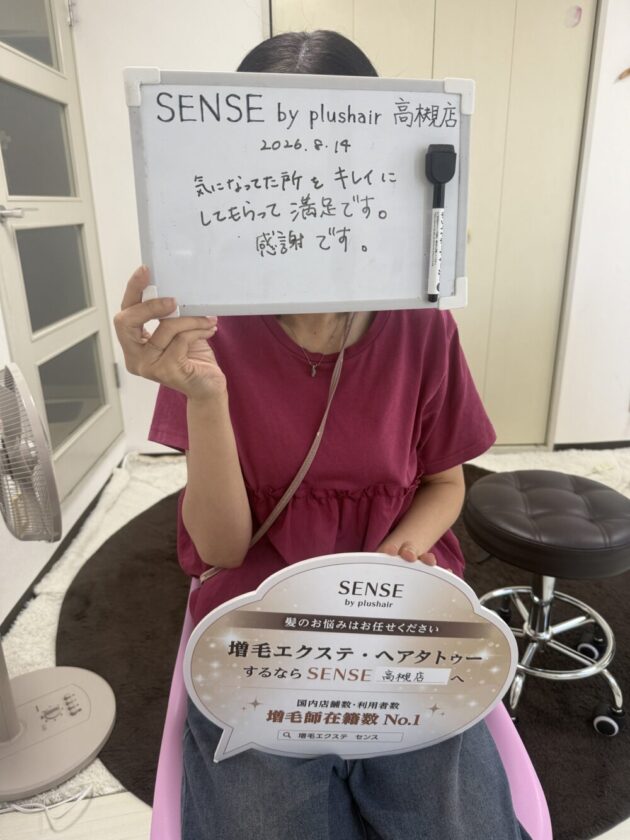 SENSE by plushair 高槻店
2026.8.14
気になってた所をキレイに
してもらって満足です。
感謝です。
SENSE
by plushair
髪のお悩みはお任せください
増毛エクステ・ヘアタトゥー
するなら SENSE 高槻店 へ
国内店舗数・利用者数
増毛師在籍数 No.1
増毛エクステ センス